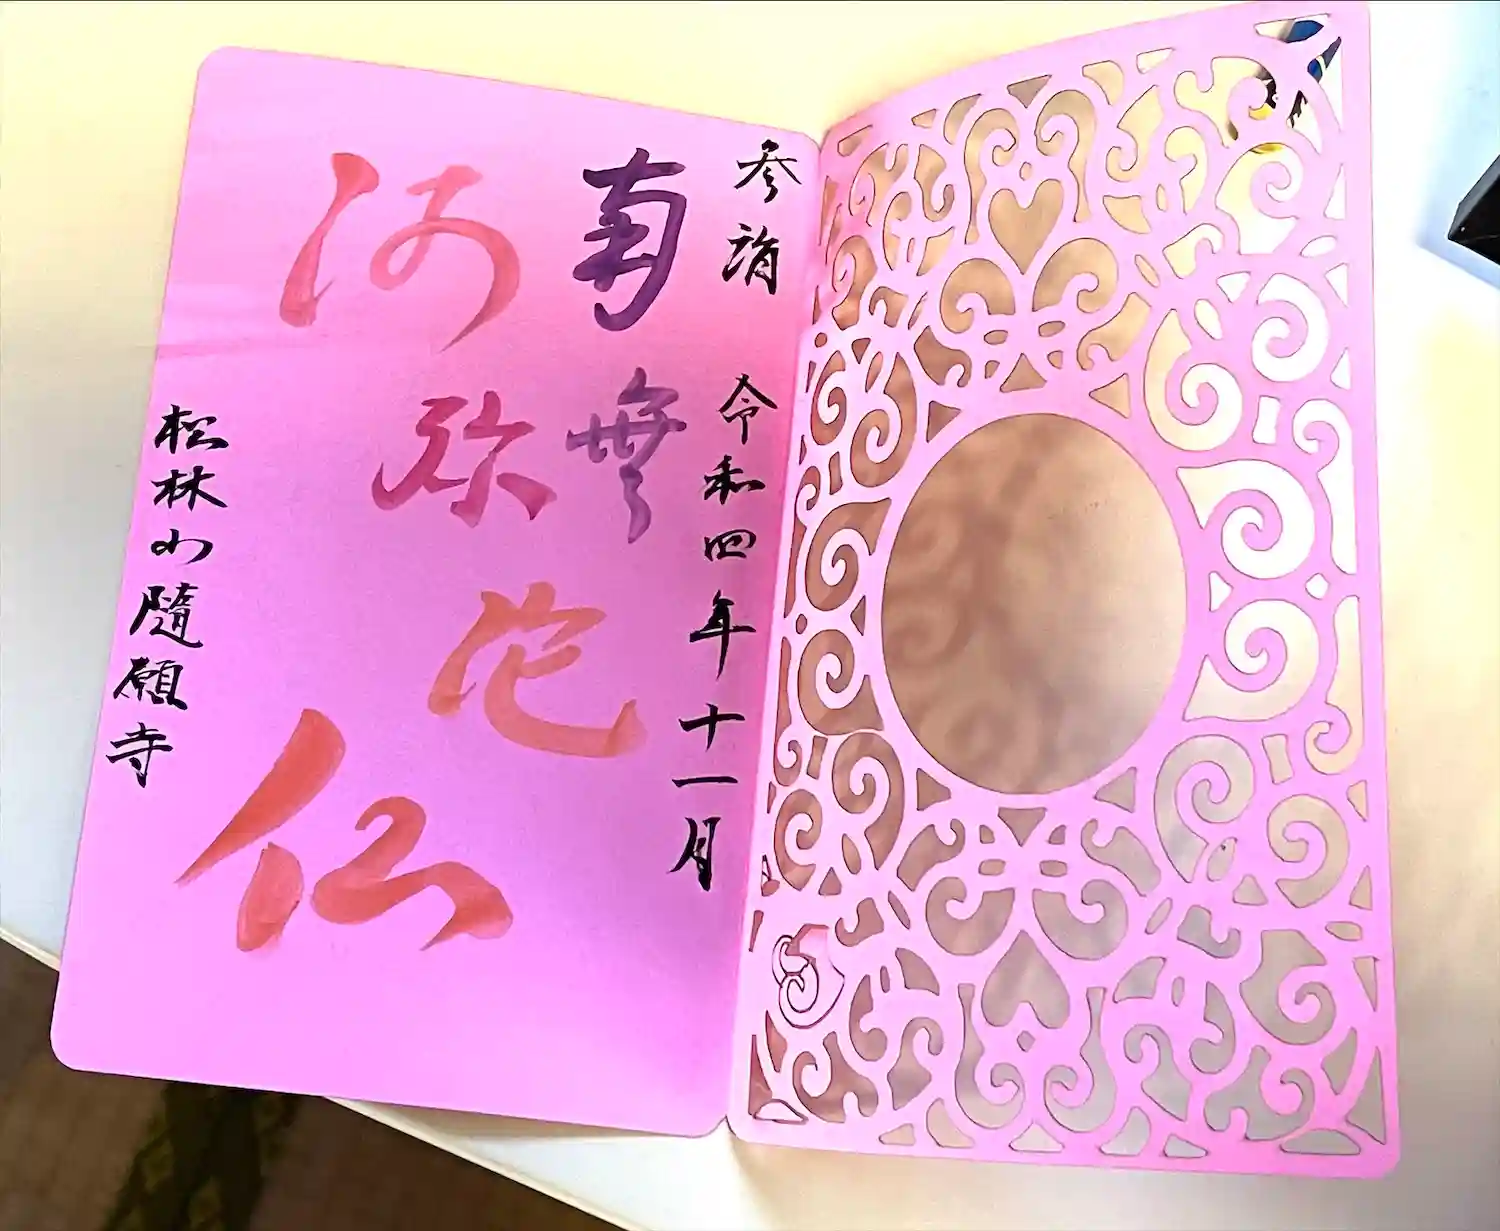 参詣 令和四年十一月
南無
阿弥陀仏
松林山隨願寺